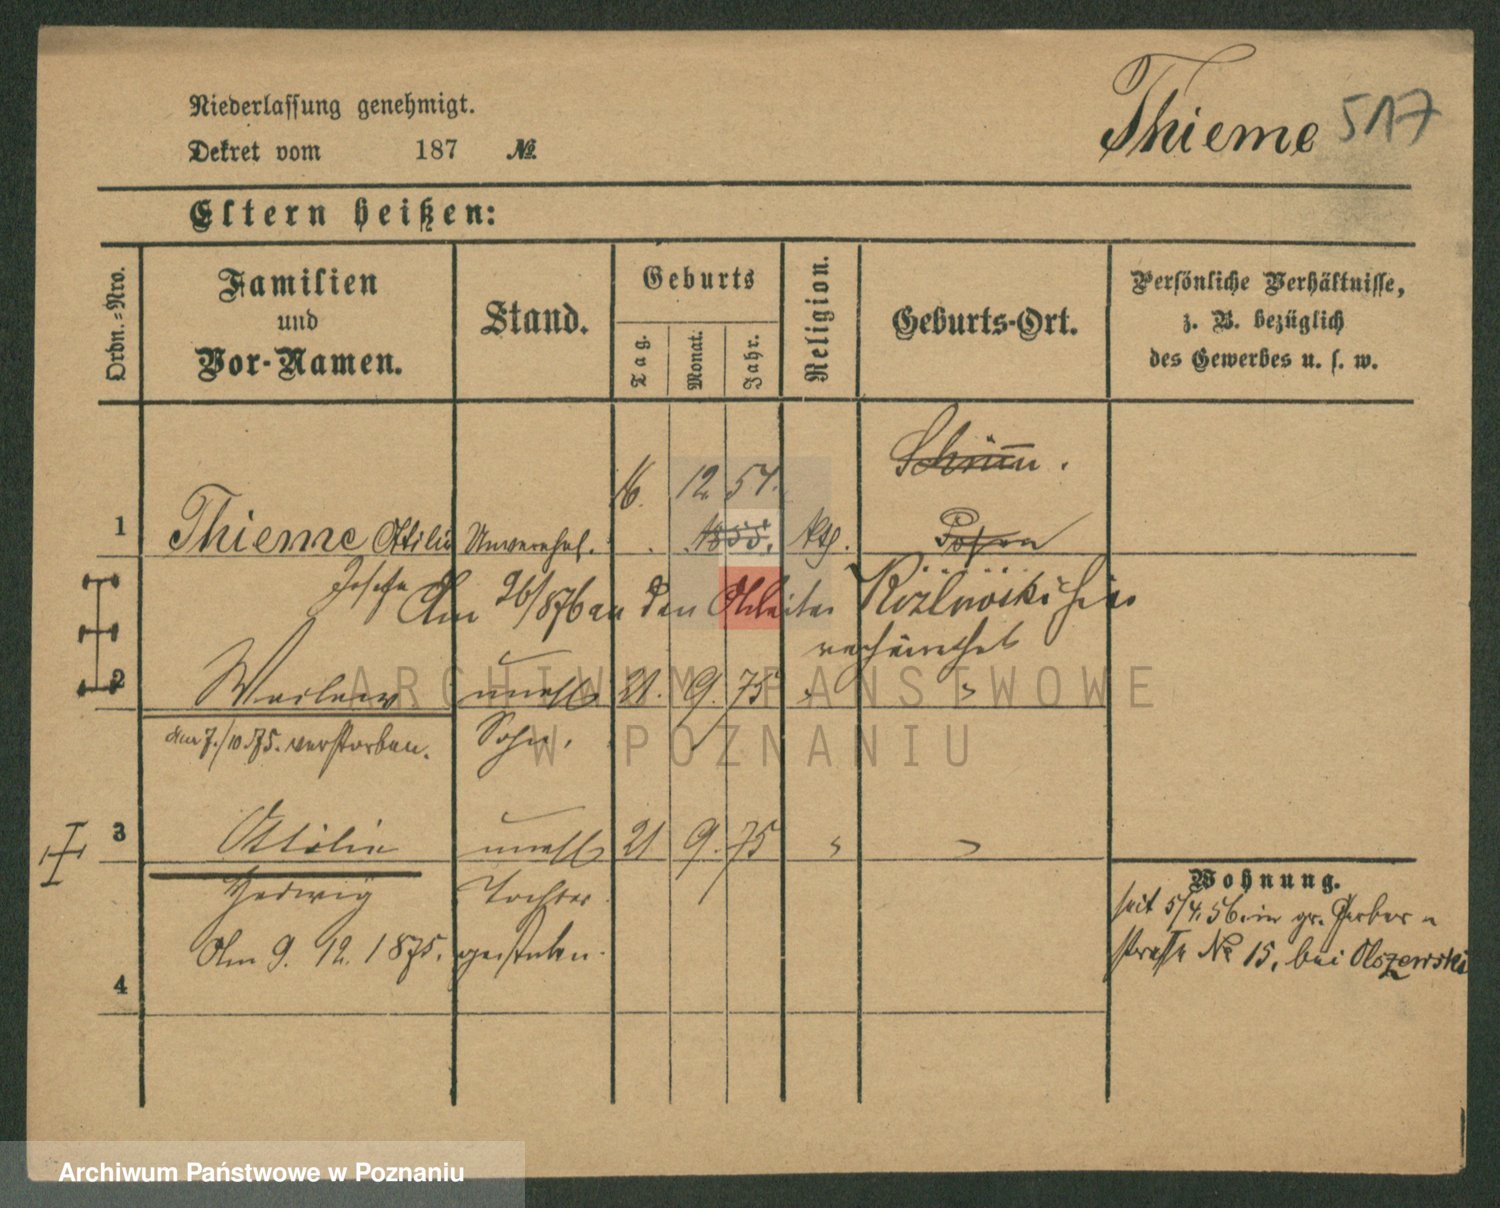 Thieme 517
Niederlassung genehmigt.
Dekret vom 187 №
Eltern heißen:
Ordn.-Nro.
Familien
und
Vor-Namen.
Stand.
Geburts
Tag.
Monat.
Jahr.
Religion.
Geburts-Ort.
Persönliche Verhältnisse,
z. B. bezüglich
des Gewerbes u. s. w.
Schrimm.
16. 12. 57.
1 Thieme Ottilie Unverehel. 1855. kth. Posen
Josefa
Am 26/876 an den Arbeiter Kozlowski hier
verheirathet
2 unehl 21. 9. 75 " "
am 7./10.75. verstorben. Sohn.
3 Ottilie unehl 21 9. 75 " "
Hedwig Tochter
Am 9. 12. 1875. gestorben.
4
Wohnung.
seit 5/4.56. in gr. Gerber-
straße № 15. bei Olszewski
ARCHIWUM PAŃSTWOWE
W POZNANIU
Archiwum Państwowe w Poznaniu